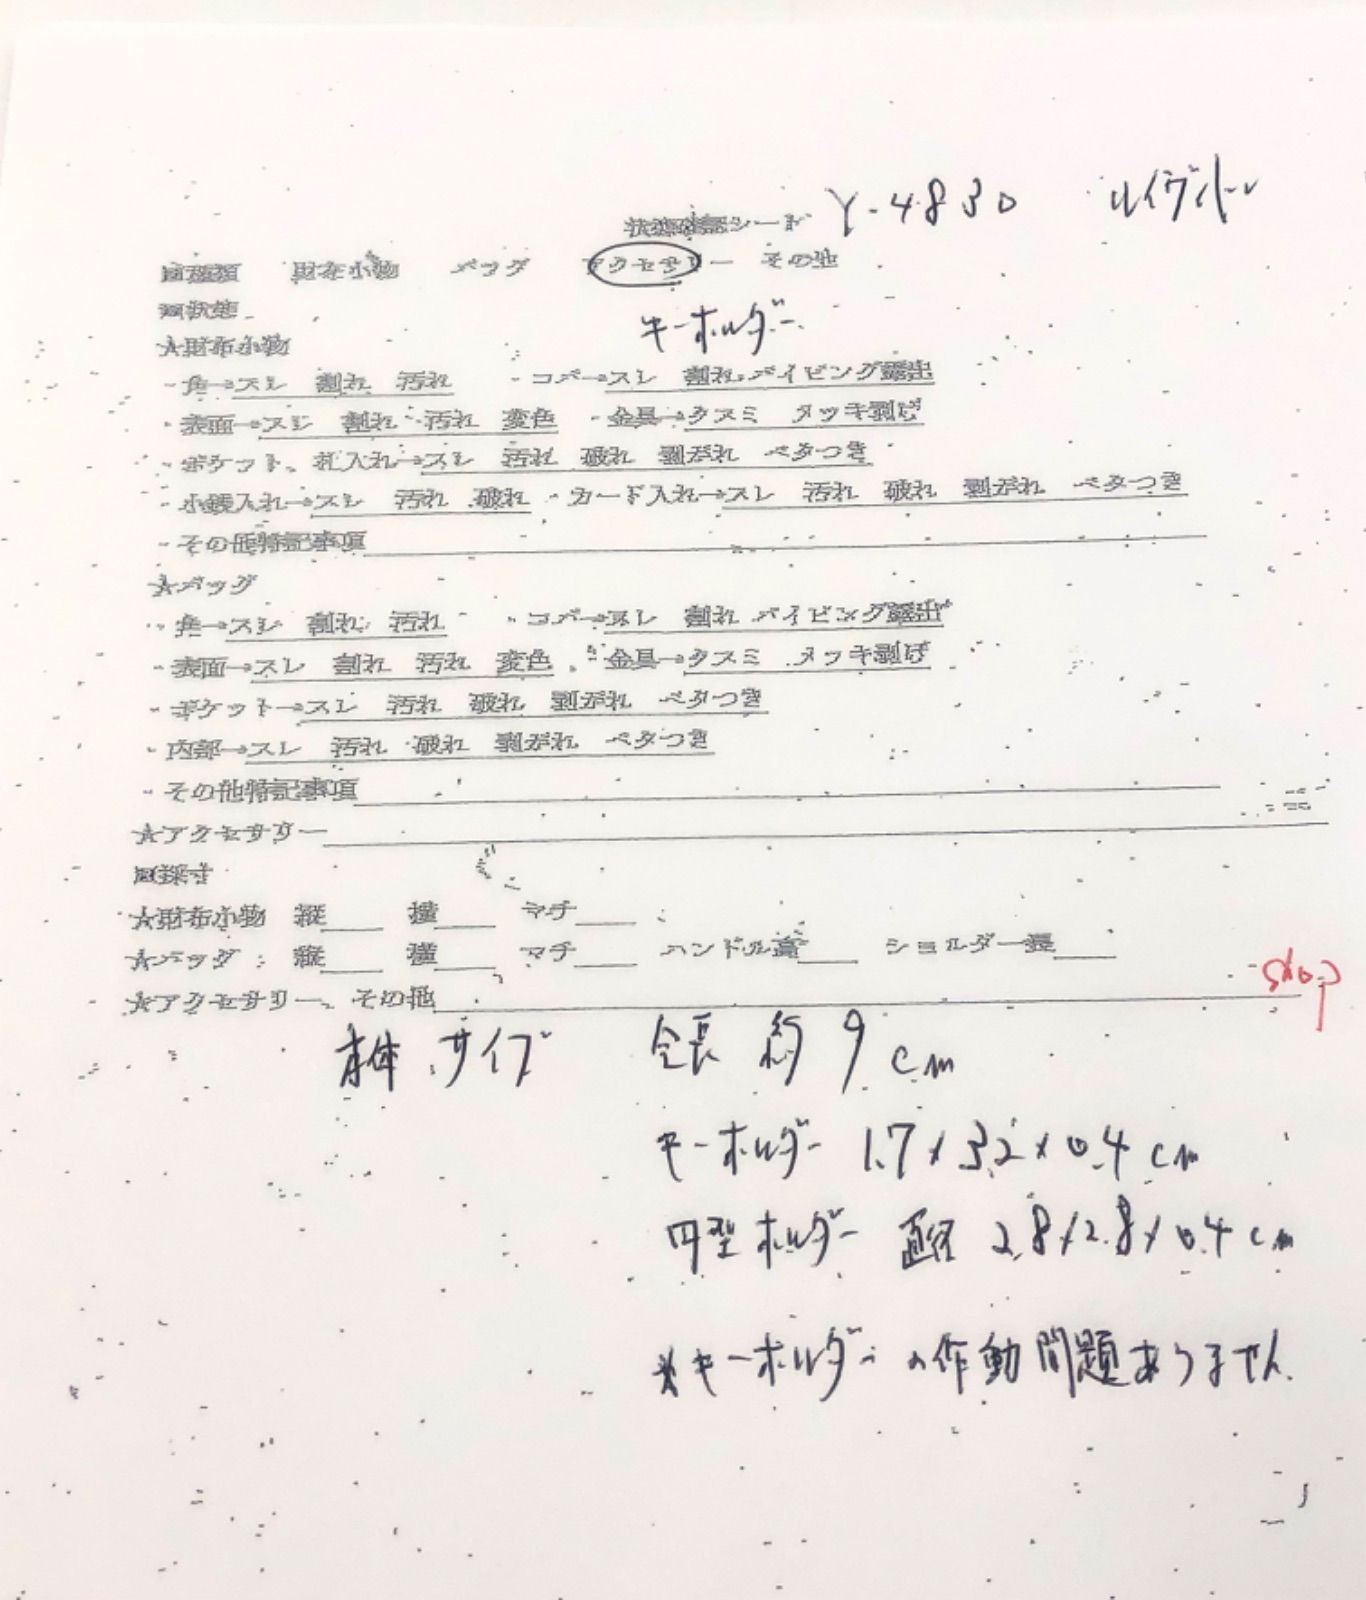 状態確認シート Y-4830 ルイヴィトン
■種類 財布小物 バッグ アクセサリー その他
■状態
キーホルダー
★財布小物
・角→スレ 割れ 汚れ ・コバ→スレ 割れ パイピング露出
・表面→スレ 割れ 汚れ 変色 ・金具→クスミ メッキ剥げ
・ポケット、札入れ→スレ 汚れ 破れ 剥がれ ベタつき
・小銭入れ→スレ 汚れ 破れ ・カード入れ→スレ 汚れ 破れ 剥がれ ベタつき
・その他特記事項
★バッグ
・角→スレ 割れ 汚れ ・コバ→スレ 割れ パイピング露出
・表面→スレ 割れ 汚れ 変色 ・金具→クスミ メッキ剥げ
・ポケット→スレ 汚れ 破れ 剥がれ ベタつき
・内部→スレ 汚れ 破れ 剥がれ ベタつき
・その他特記事項
★アクセサリー
■採寸
★財布小物 縦 横 マチ
★バッグ 縦 横 マチ ハンドル高 ショルダー長
★アクセサリー、その他
shop
本体サイズ 全長 約9cm
キーホルダー 1.7×3.2×0.4cm
円型ホルダー 直径 2.8×2.8×0.4cm
※キーホルダーの作動問題ありません.